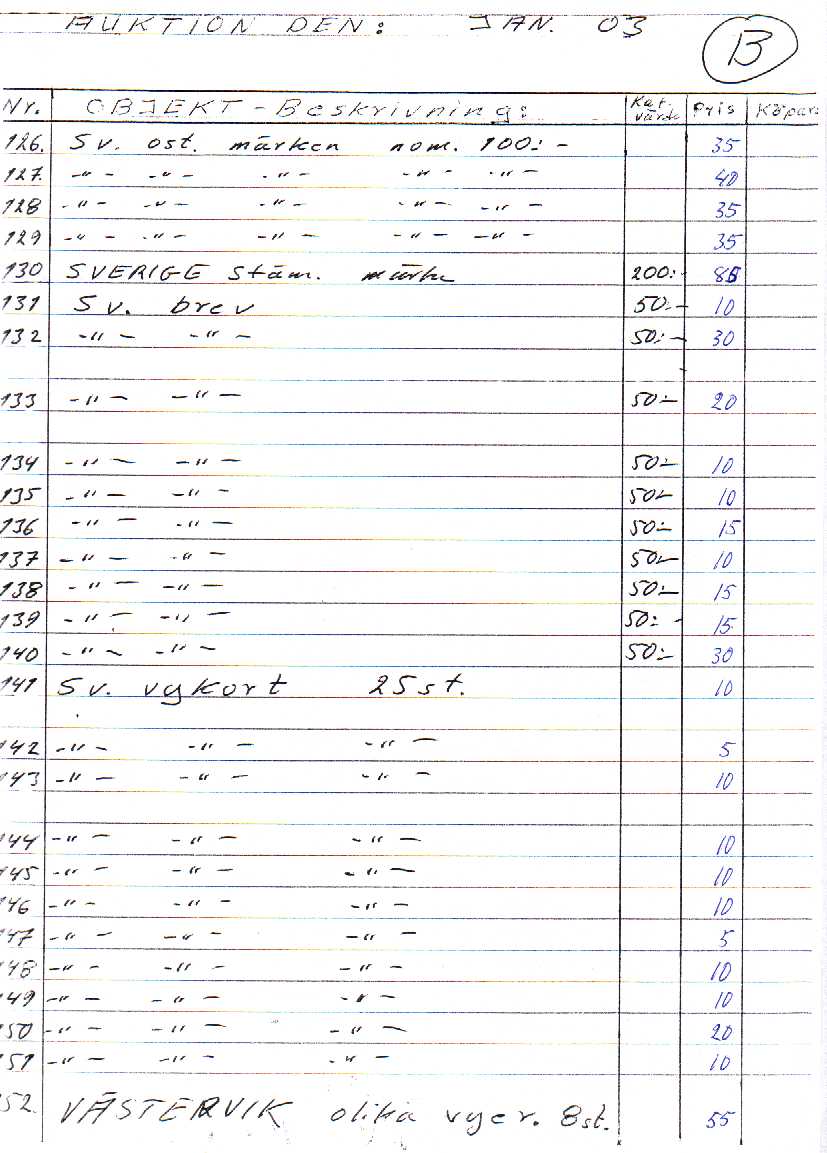 AUKTION DEN: JAN. 03 B
Nr. OBJEKT - Beskrivning: Kat. värde Pris Köpare
126. Sv. ost. märken nom. 100:- 35
127. -"- -"- -"- -"- -"- 40
128 -"- -"- -"- -"- -"- 35
129 -"- -"- -"- -"- -"- 35
130 SVERIGE stäm. märke 200:-
131 Sv. brev 50:- 10
132 -"- -"- 50:- 30
133 -"- -"- 50:- 20
134 -"- -"- 50:- 10
135 -"- -"- 50:- 10
136 -"- -"- 50:- 15
137 -"- -"- 50:- 10
138 -"- -"- 50:- 15
139 -"- -"- 50:- 15
140 -"- -"- 50:- 30
141 Sv. vykort 25 st. 10
142 -"- -"- -"- 5
143 -"- -"- -"- 10
144 -"- -"- -"- 10
145 -"- -"- -"- 10
146 -"- -"- -"- 10
147 -"- -"- -"- 5
148 -"- -"- -"- 10
149 -"- -"- -"- 10
150 -"- -"- -"- 20
151 -"- -"- -"- 10
152. VÄSTERVIK olika vyer. 8 st. 55